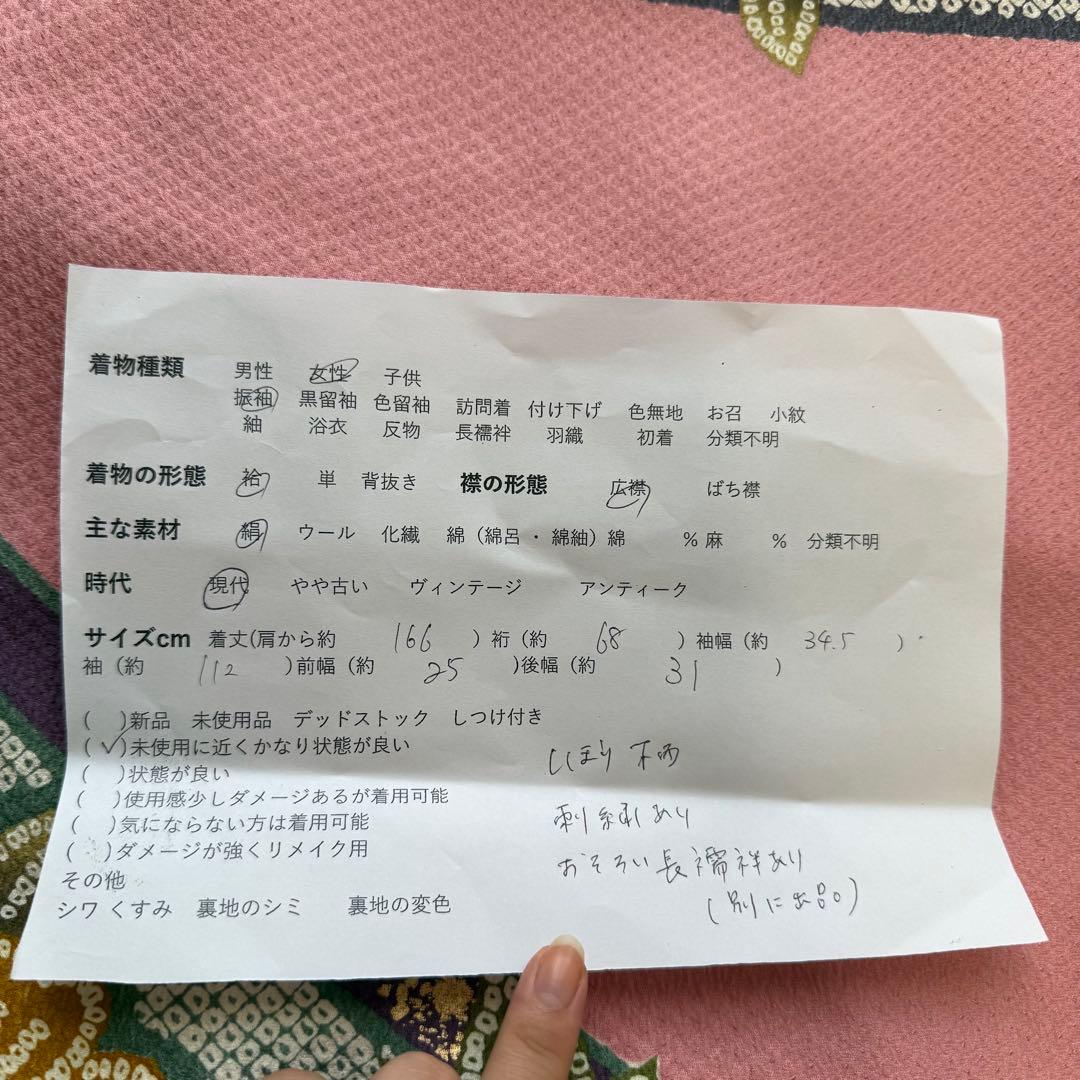 着物種類 男性 女性 子供
振袖 黒留袖 色留袖 訪問着 付け下げ 色無地 お召 小紋
紬 浴衣 反物 長襦袢 羽織 初着 分類不明
着物の形態 袷 単 背抜き 襟の形態 広襟 ばち襟
主な素材 絹 ウール 化繊 綿（綿呂・綿紬）綿 %麻 % 分類不明
時代 現代 やや古い ヴィンテージ アンティーク
サイズcm 着丈(肩から約 166 ）裄（約 68 ）袖幅（約 34.5 ）
袖（約 112 ）前幅（約 25 ）後幅（約 31 ）
( )新品 未使用品 デッドストック しつけ付き
(✓)未使用に近くかなり状態が良い
( )状態が良い
( )使用感少しダメージあるが着用可能
( )気にならない方は着用可能
( )ダメージが強くリメイク用
その他
シワ くすみ 裏地のシミ 裏地の変色
しぼり 柄
刺繍あり
おそろい長襦袢あり
(別に出品)